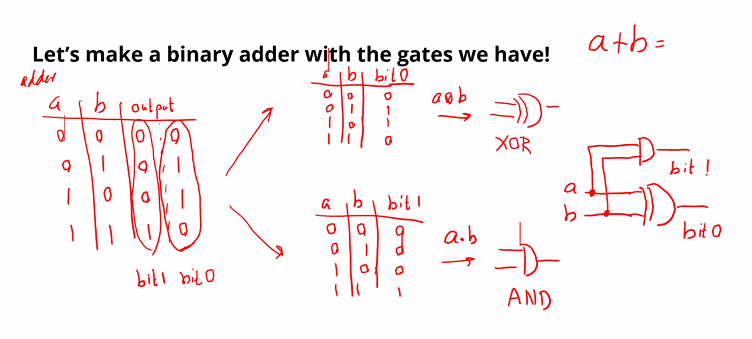 Let's make a binary adder with the gates we have!
a+b =
adder
a b output
0 0 0 0
0 1 0 1
1 0 0 1
1 1 1 0
bit1 bit0
a b bit0
0 0 0
0 1 1
1 0 1
1 1 0
a⊕b
XOR
a b bit1
0 0 0
0 1 0
1 0 0
1 1 1
a.b
AND
bit1
a
b
bit0